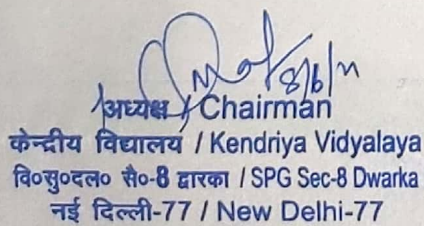 8/6/11
अध्यक्ष / Chairman
केन्द्रीय विद्यालय / Kendriya Vidyalaya
वि०सु०दल० सै०-8 द्वारका / SPG Sec-8 Dwarka
नई दिल्ली-77 / New Delhi-77